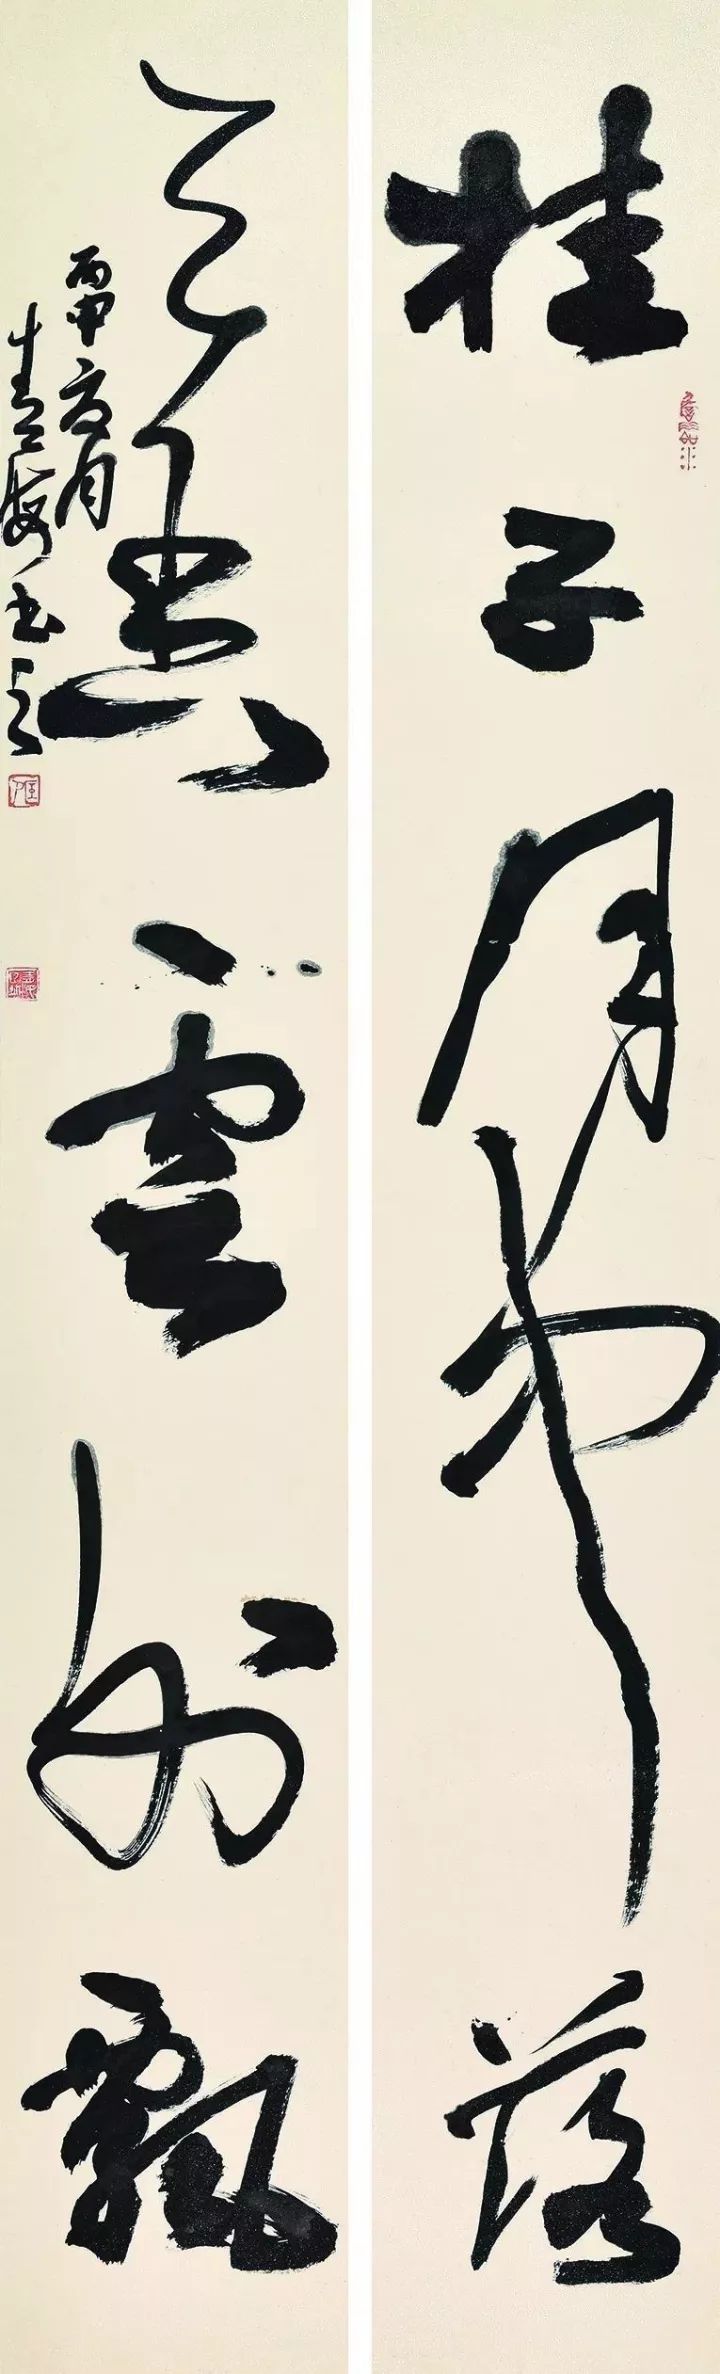 桂子月中落
天香雲外飄
丙申夏月
书之